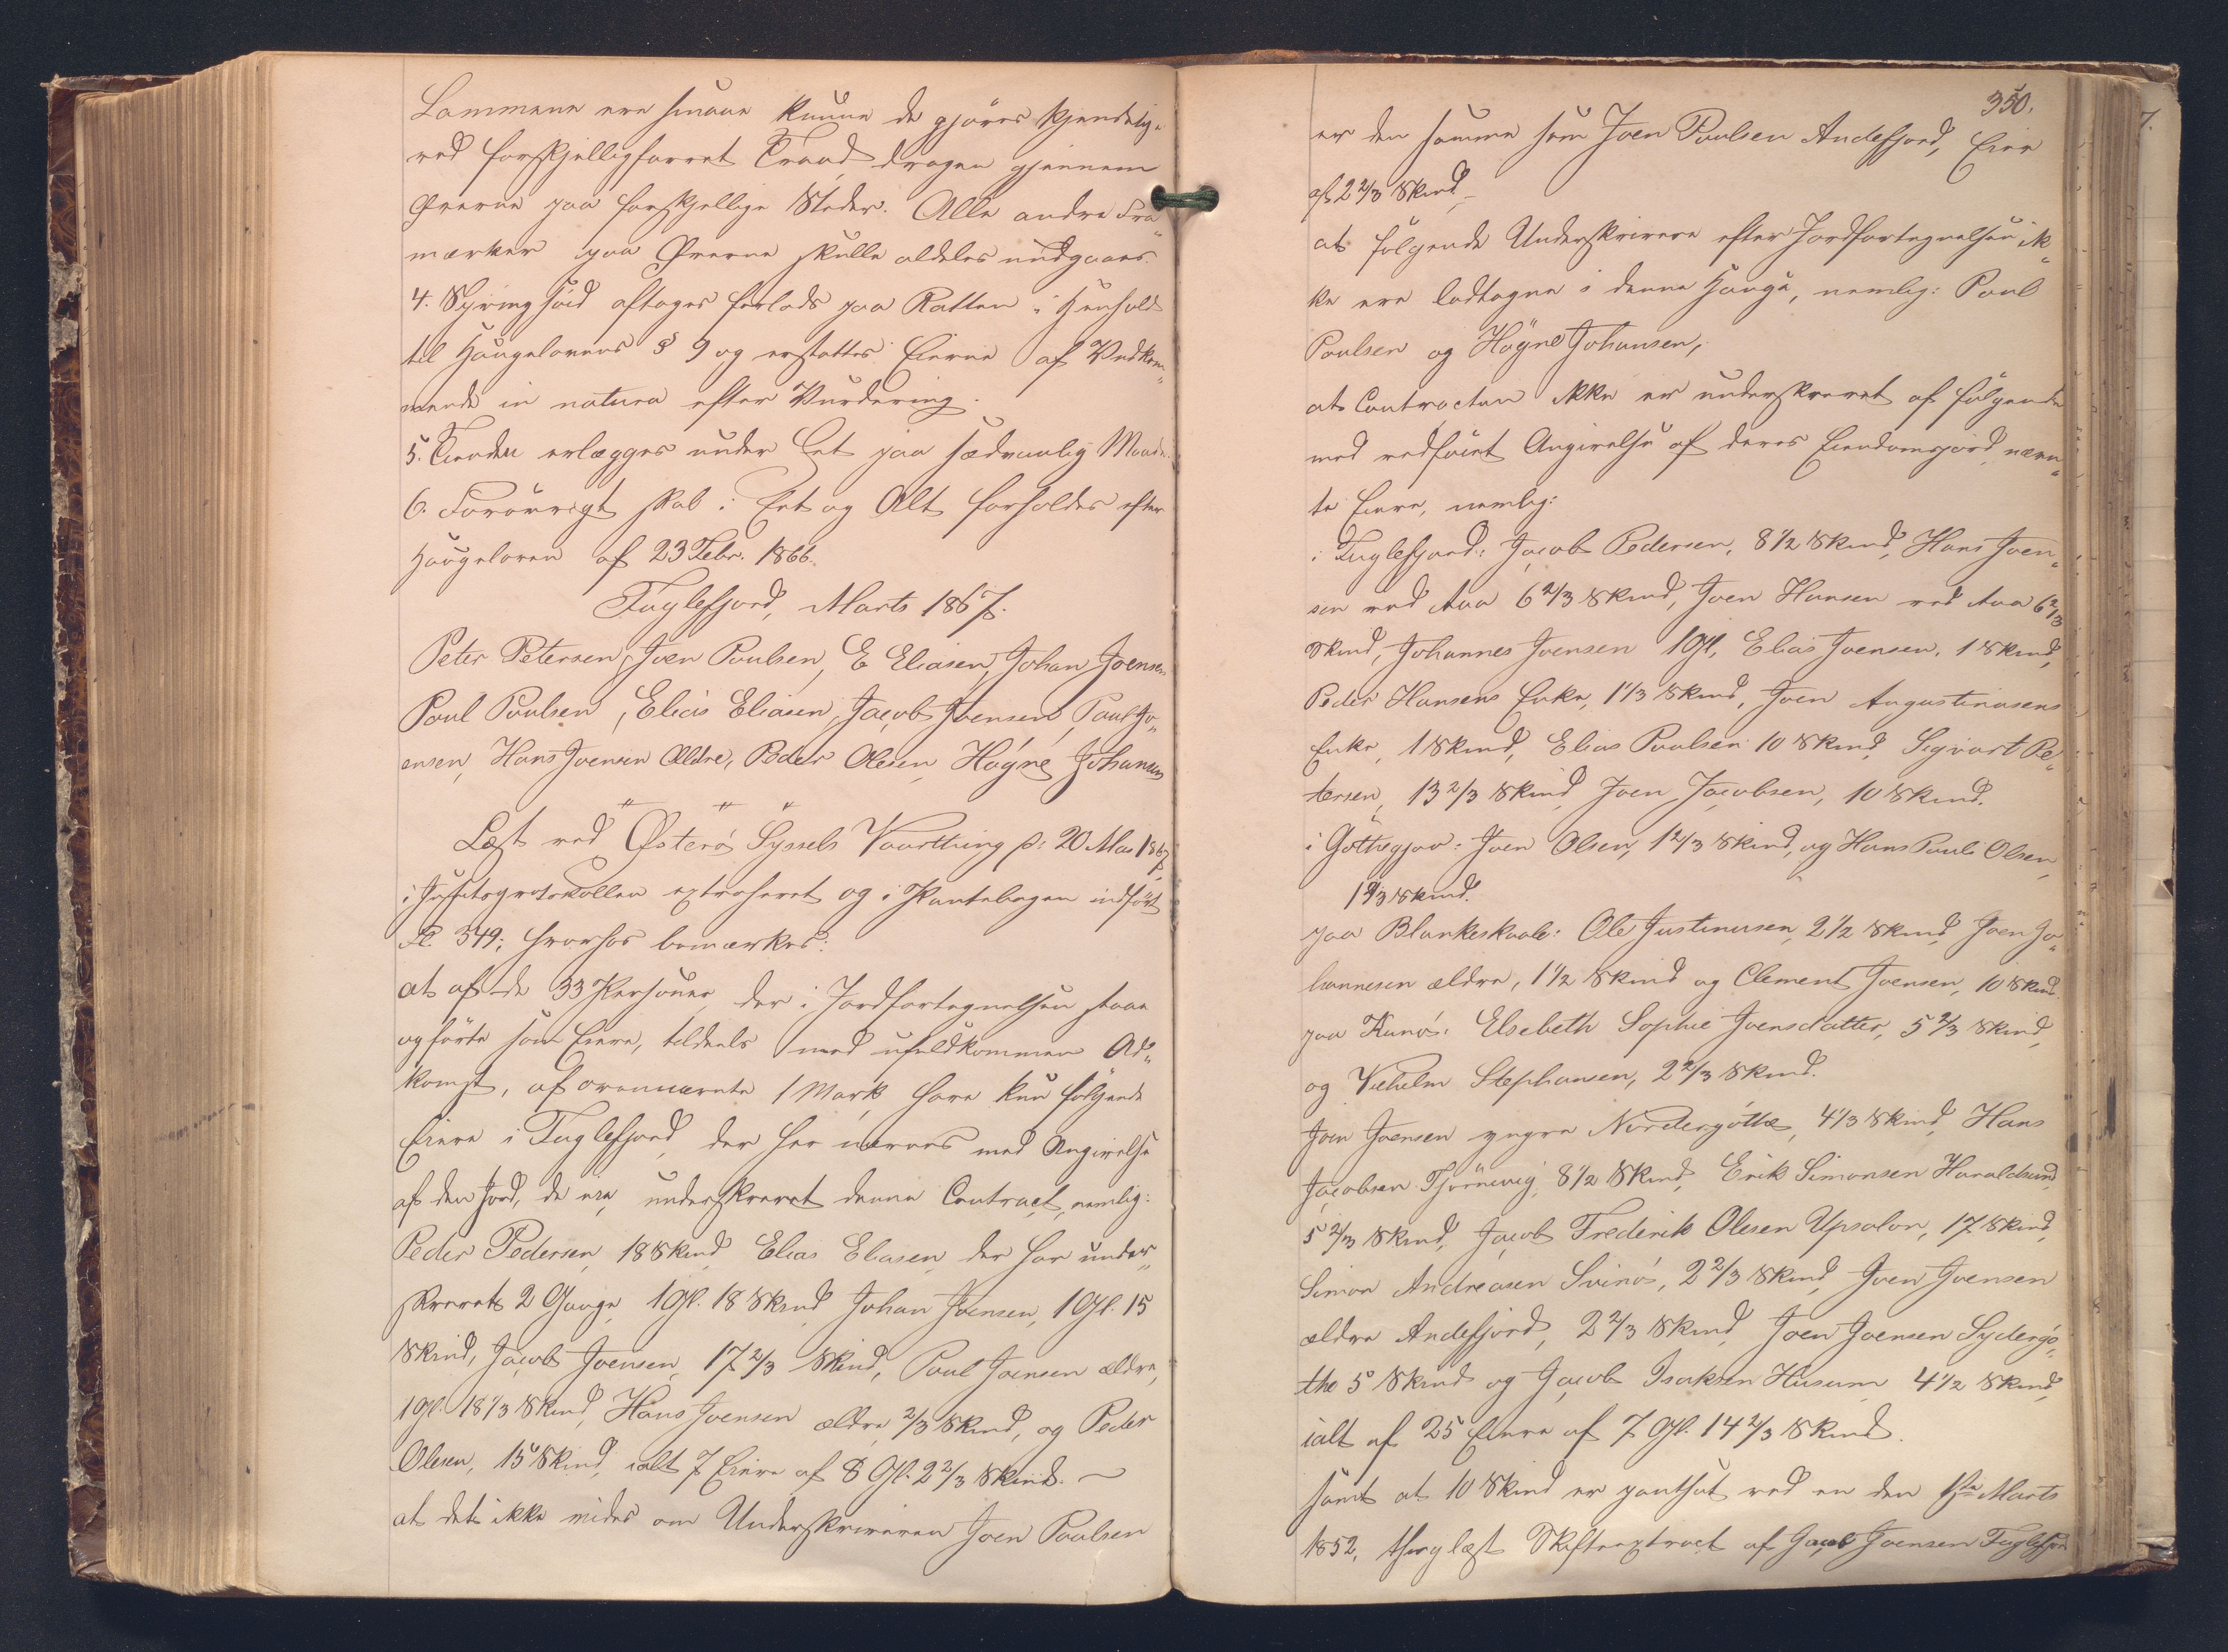 Lammene ere smaae kunne de gjøres kjendelige
ved forskjelligfarvet Traad dragen gjennem
Ørerne paa forskjellige Steder. Alle andre Fra„
mærker paa Ørerne skulle aldeles undgaaes.
4. Springfaid aftages forlods paa Retten i Henhold
til Haugelovens § 9 og erstattes Eierne af Vedkom„
mende in natura efter Vurdering.
5. Tienden erlægges under Eet paa sædvanlig Maade.
6. Forøvrigt skal i Eet og Alt forholdes efter
Haugeloven af 23 Febr. 1866.
Fuglefjord, Marts 1867.
Peter Petersen, Joen Poulsen, E Eliasen, Johan Joensen
Poul Poulsen, Elias Eliasen, Jacob Joensen, Poul Jo„
ensen, Hans Joensen Ældre, Peder Olesen, Høgne Johansen
Læst ved Østerø Syssels Vaarthing d: 20 Mai 1867,
i Justitsprotokollen extraheret og i Pantebogen indført
Fl. 349; hvorhos bemærkes:
at af de 33 Personer der i Jordfortegnelsen staae
opførte som Eiere, tildeels med ufuldkommen Ad„
komst, af ovennævnte 1 Mark have kun følgende
Eiere i Fuglefjord, der her nævnes med Angivelse
af den Jord, de eie, underskrevet denne Contract, nemlig:
Peder Pedersen, 18 Skind, Elias Eliasen, der har under„
skrevet 2 Gange, 1 Gl. 18 Skind, Johan Joensen, 1 Gl. 15
Skind, Jacob Joensen, 17 2/3 Skind, Poul Joensen ældre,
1 Gl. 18 1/3 Skind, Hans Joensen ældre 2/3 Skind, og Peder
Olesen, 15 Skind, ialt 7 Eiere af 8 Gl. 2 2/3 Skind. –
at det ikke vides om Underskriveren Joen Poulsen
350.
er den samme som Joen Poulsen Andefjord, Eier
af 2 2/3 Skind, –
at følgende Underskrivere efter Jordfortegnelsen ik„
ke ere lodtagne i denne Hauge, nemlig: Poul
Poulsen og Høgne Johansen,
at Contracten ikke er underskrevet af følgende
med vedføiet Angivelse af deres Eiendomsjord nævn„
te Eiere, nemlig:
i Fuglefjord: Jacob Pedersen, 8 1/2 Skind, Hans Joen„
sen ved Aaa 6 2/3 Skind, Joen Hansen ved Aaa 6 2/3
Skind, Johannes Joensen 1 Gl, Elias Joensen, 1 Skind,
Peder Hansens Enke, 1 1/3 Skind, Joen Augustinusens
Enke, 1 Skind, Elias Poulsen 10 Skind, Sigvart Pe„
tersen, 13 2/3 Skind, Joen Jacobsen, 10 Skind.
i Gøthegjov: Joen Olsen, 1 2/3 Skind, og Hans Pauli Olsen,
1 2/3 Skind.
paa Blankeskaale: Ole Justinusen, 2 1/2 Skind, Joen Jo„
hannesen ældre, 1 1/2 Skind og Clement Joensen, 10 Skind.
paa Kunø: Elsebeth Sophie Joensdatter, 5 2/3 Skind,
og Vilhelm Stephansen, 2 2/3 Skind.
Joen Joensen yngre Nordergøthe, 4 1/3 Skind, Hans
Jacobsen Tjørnevig, 8 1/2 Skind, Erik Simonsen Haraldsund,
5 2/3 Skind, Jacob Frederik Olesen Upsalon, 17 Skind,
Simon Andreasen Svinø, 2 2/3 Skind, Joen Joensen
ældre Andefjord, 2 2/3 Skind, Joen Joensen Sydergø„
the 5 Skind og Jacob Isaksen Husum 4 1/2 Skind,
ialt af 25 Eiere af 7 Gl. 14 2/3 Skind.
samt at 10 Skind er pantsat ved en den Marts
1852, thinglæst Skifteextract af Jacob Joensen Fuglefjord